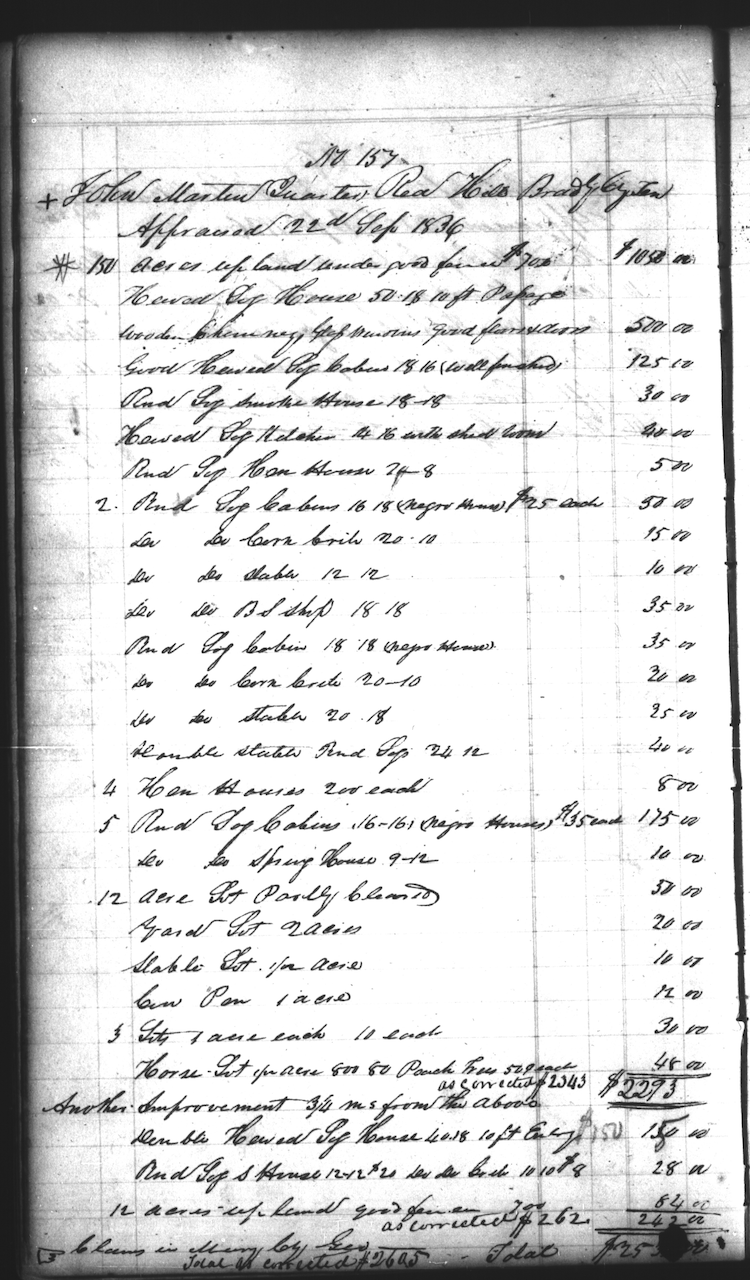 No 157
+ John Martin (Quarter) Red Hill
Appraised 22d Sep 1836
150 acres up land under good fence $700 $1050 00
Hewed Log House 50.18 10 ft
wooden Chimney, good floors & doors 500 00
Good Hewed Log Cabin 18 16 (well finished) 125 00
Rnd Log Smoke House 18-18 30 00
Hewed Log Kitchen 14 16 with shed room 40 00
Rnd Log Hen House 8 5 00
2. Rnd Log Cabins 16 18 (negro Houses) $25 each 50 00
Do Do Corn Crib 20-10 15 00
Do Do Stable 12 12 10 00
Do Do B S Shop 18 18 35 00
Rnd Log Cabin 18 18 (negro House) 35 00
Do Do Corn Crib 20-10 20 00
Do Do Stable 20.18 25 00
Double Stable Rnd Logs 24 12 40 00
4 Hen Houses 200 each 8 00
5 Rnd Log Cabins (16-16) (negro Houses) $35 each 175 00
Do Do Spring House 9-12 10 00
12 acre Lot Partly Cleared 50 00
Yard Lot 2 acres 20 00
Stable Lot 1/2 acre 10 00
Cow Pen 1 acre 12 00
3 Lots 1 acre each 10 each 30 00
Horse Lot 1/2 acre 800 80 Peach Trees 50 each 48 00
as corrected $2343 $2293
Another Improvement 3/4 ms from the above
Double Hewed Log House 40.18 10 ft $150 150 00
Rnd Log S House 12-12 $20 Do Do Crib 10 10 $8 28 00
12 acres up land good fence 700 84 00
as corrected $262 242 00
Claims in Murry Cty Geo
Total as corrected $2605 Total